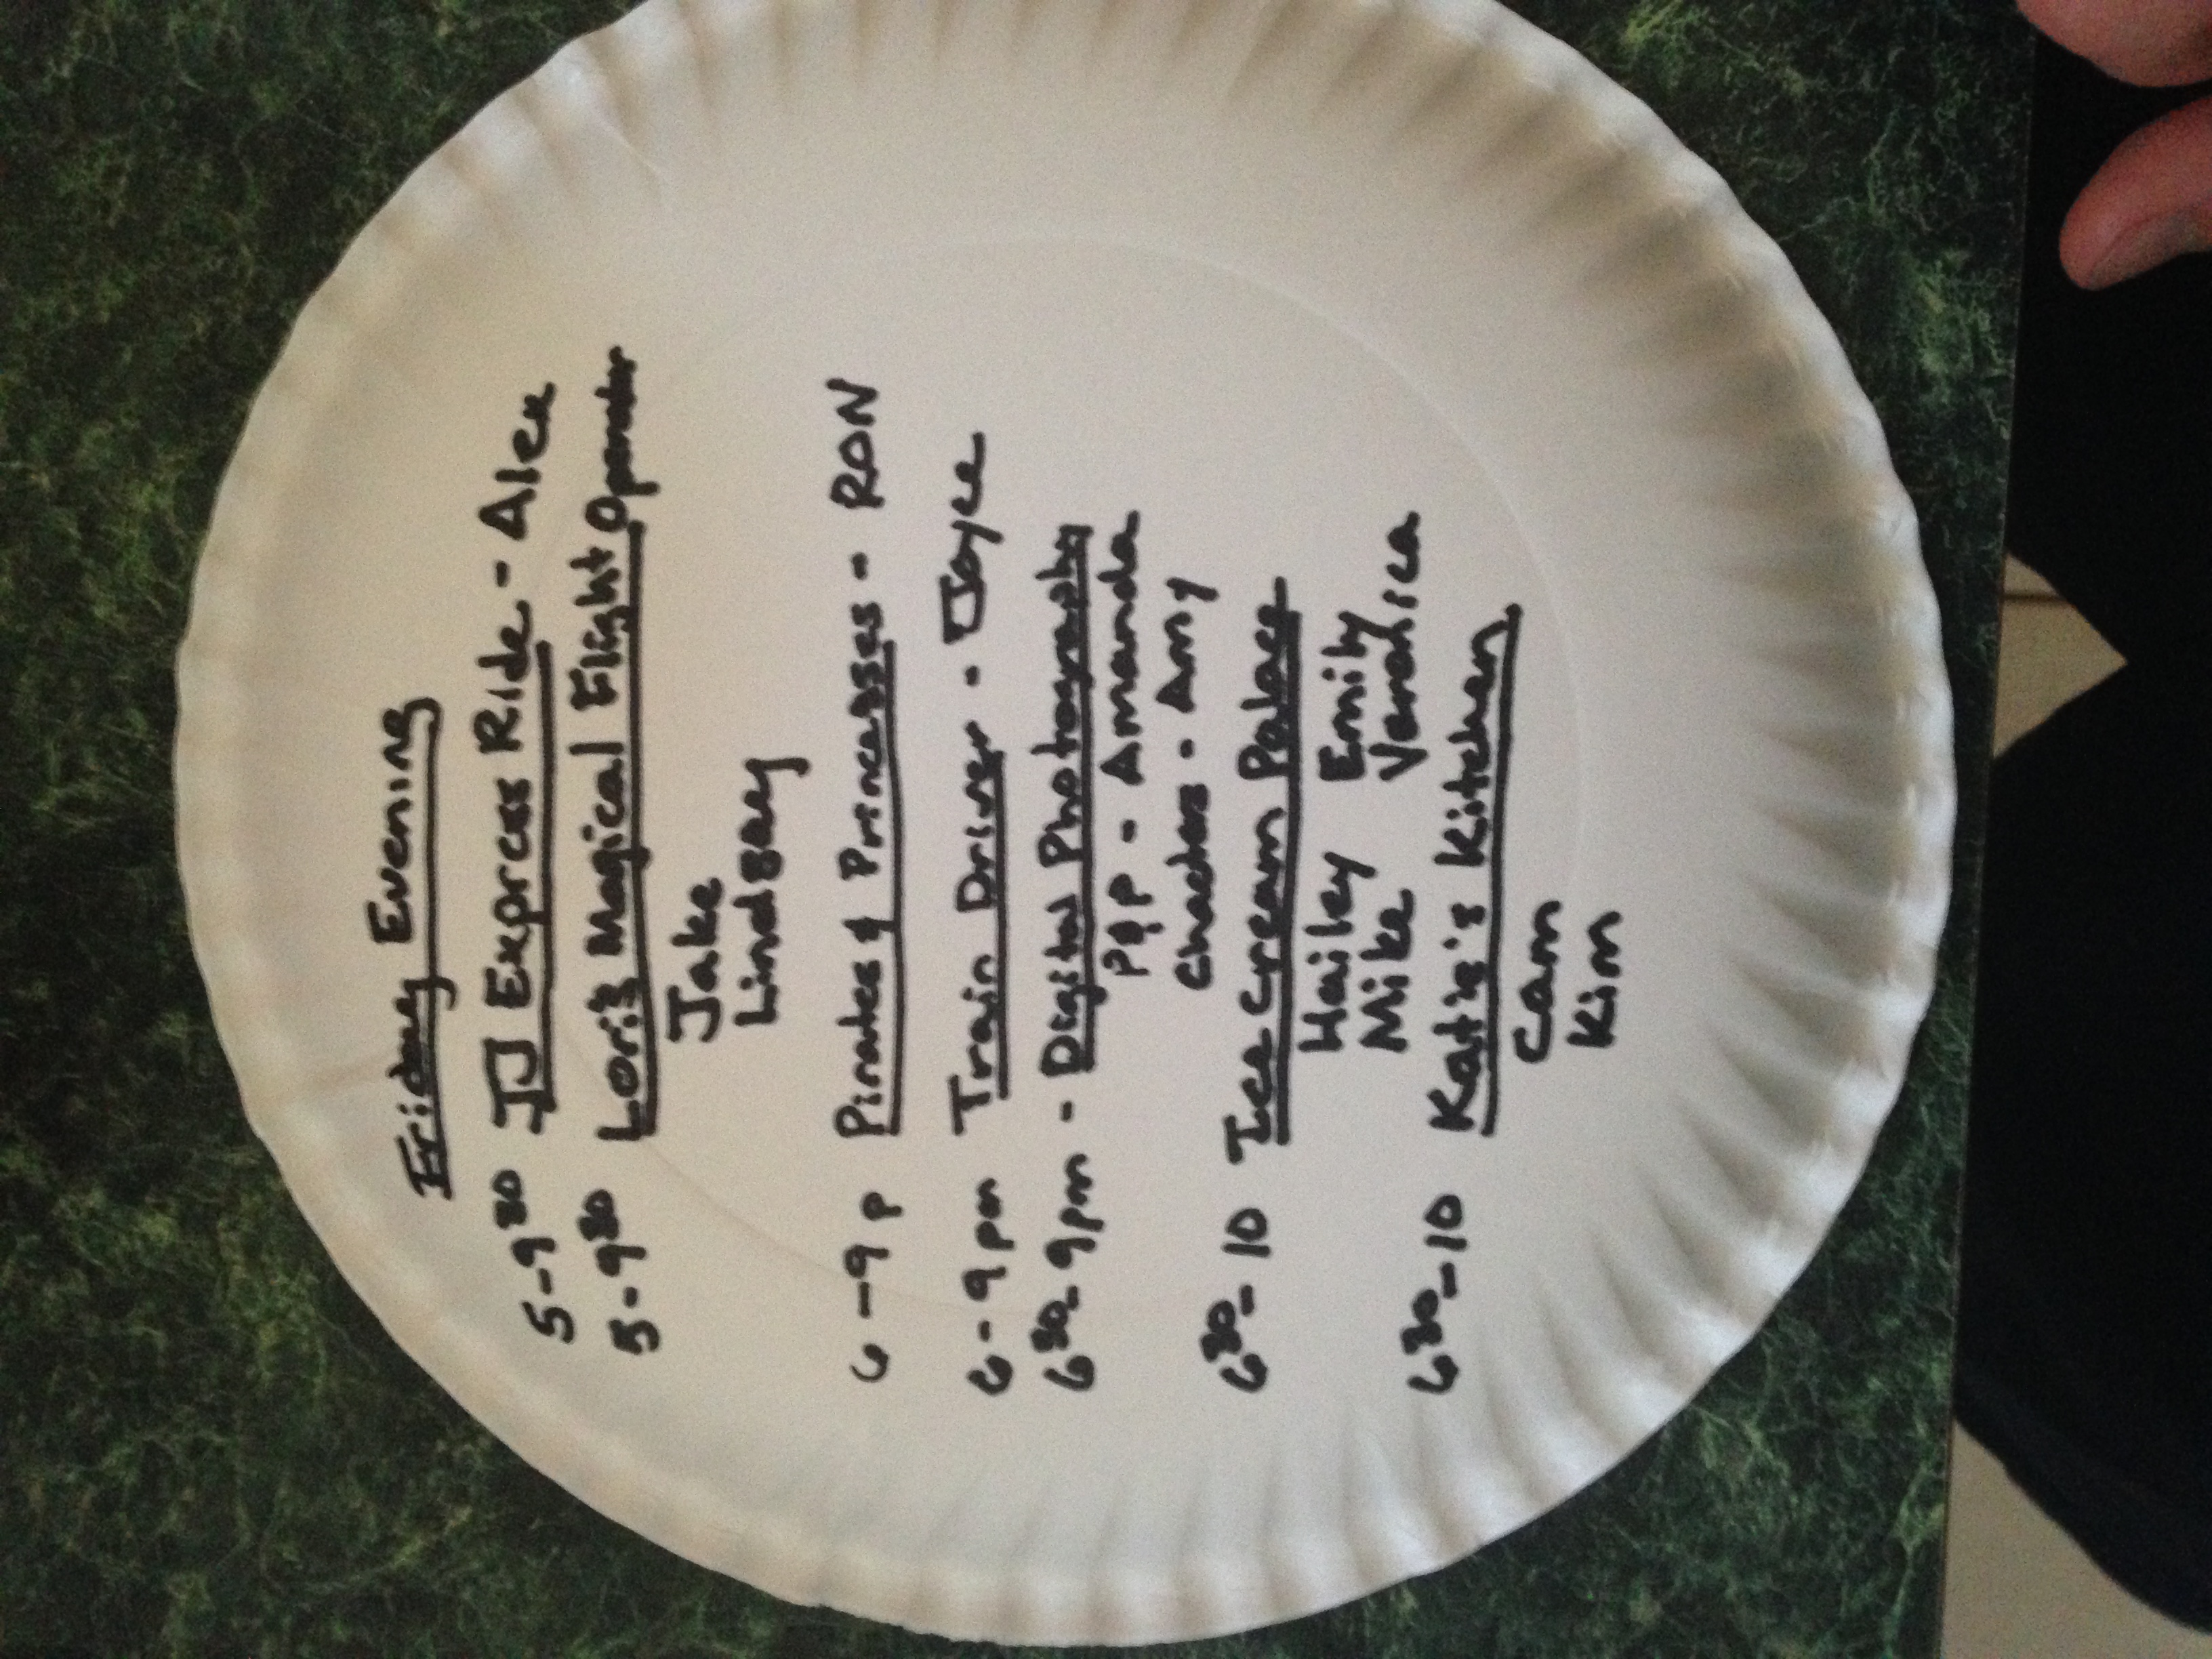 Friday Evening
5-9³⁰ JJ Express Ride - Alex
5-9³⁰ Lori's Magical Flight Operator
Jake
Lindsay
6-9p Pirates & Princesses - RON
6-9pm Train Driver - Joyce
6³⁰-9pm - Digital Photography
P&P - Amanda
- Amy
6³⁰-10 Ice Cream Palace
Hailey Emily
Mike
6³⁰-10 Katie's Kitchen
Cam
Kim